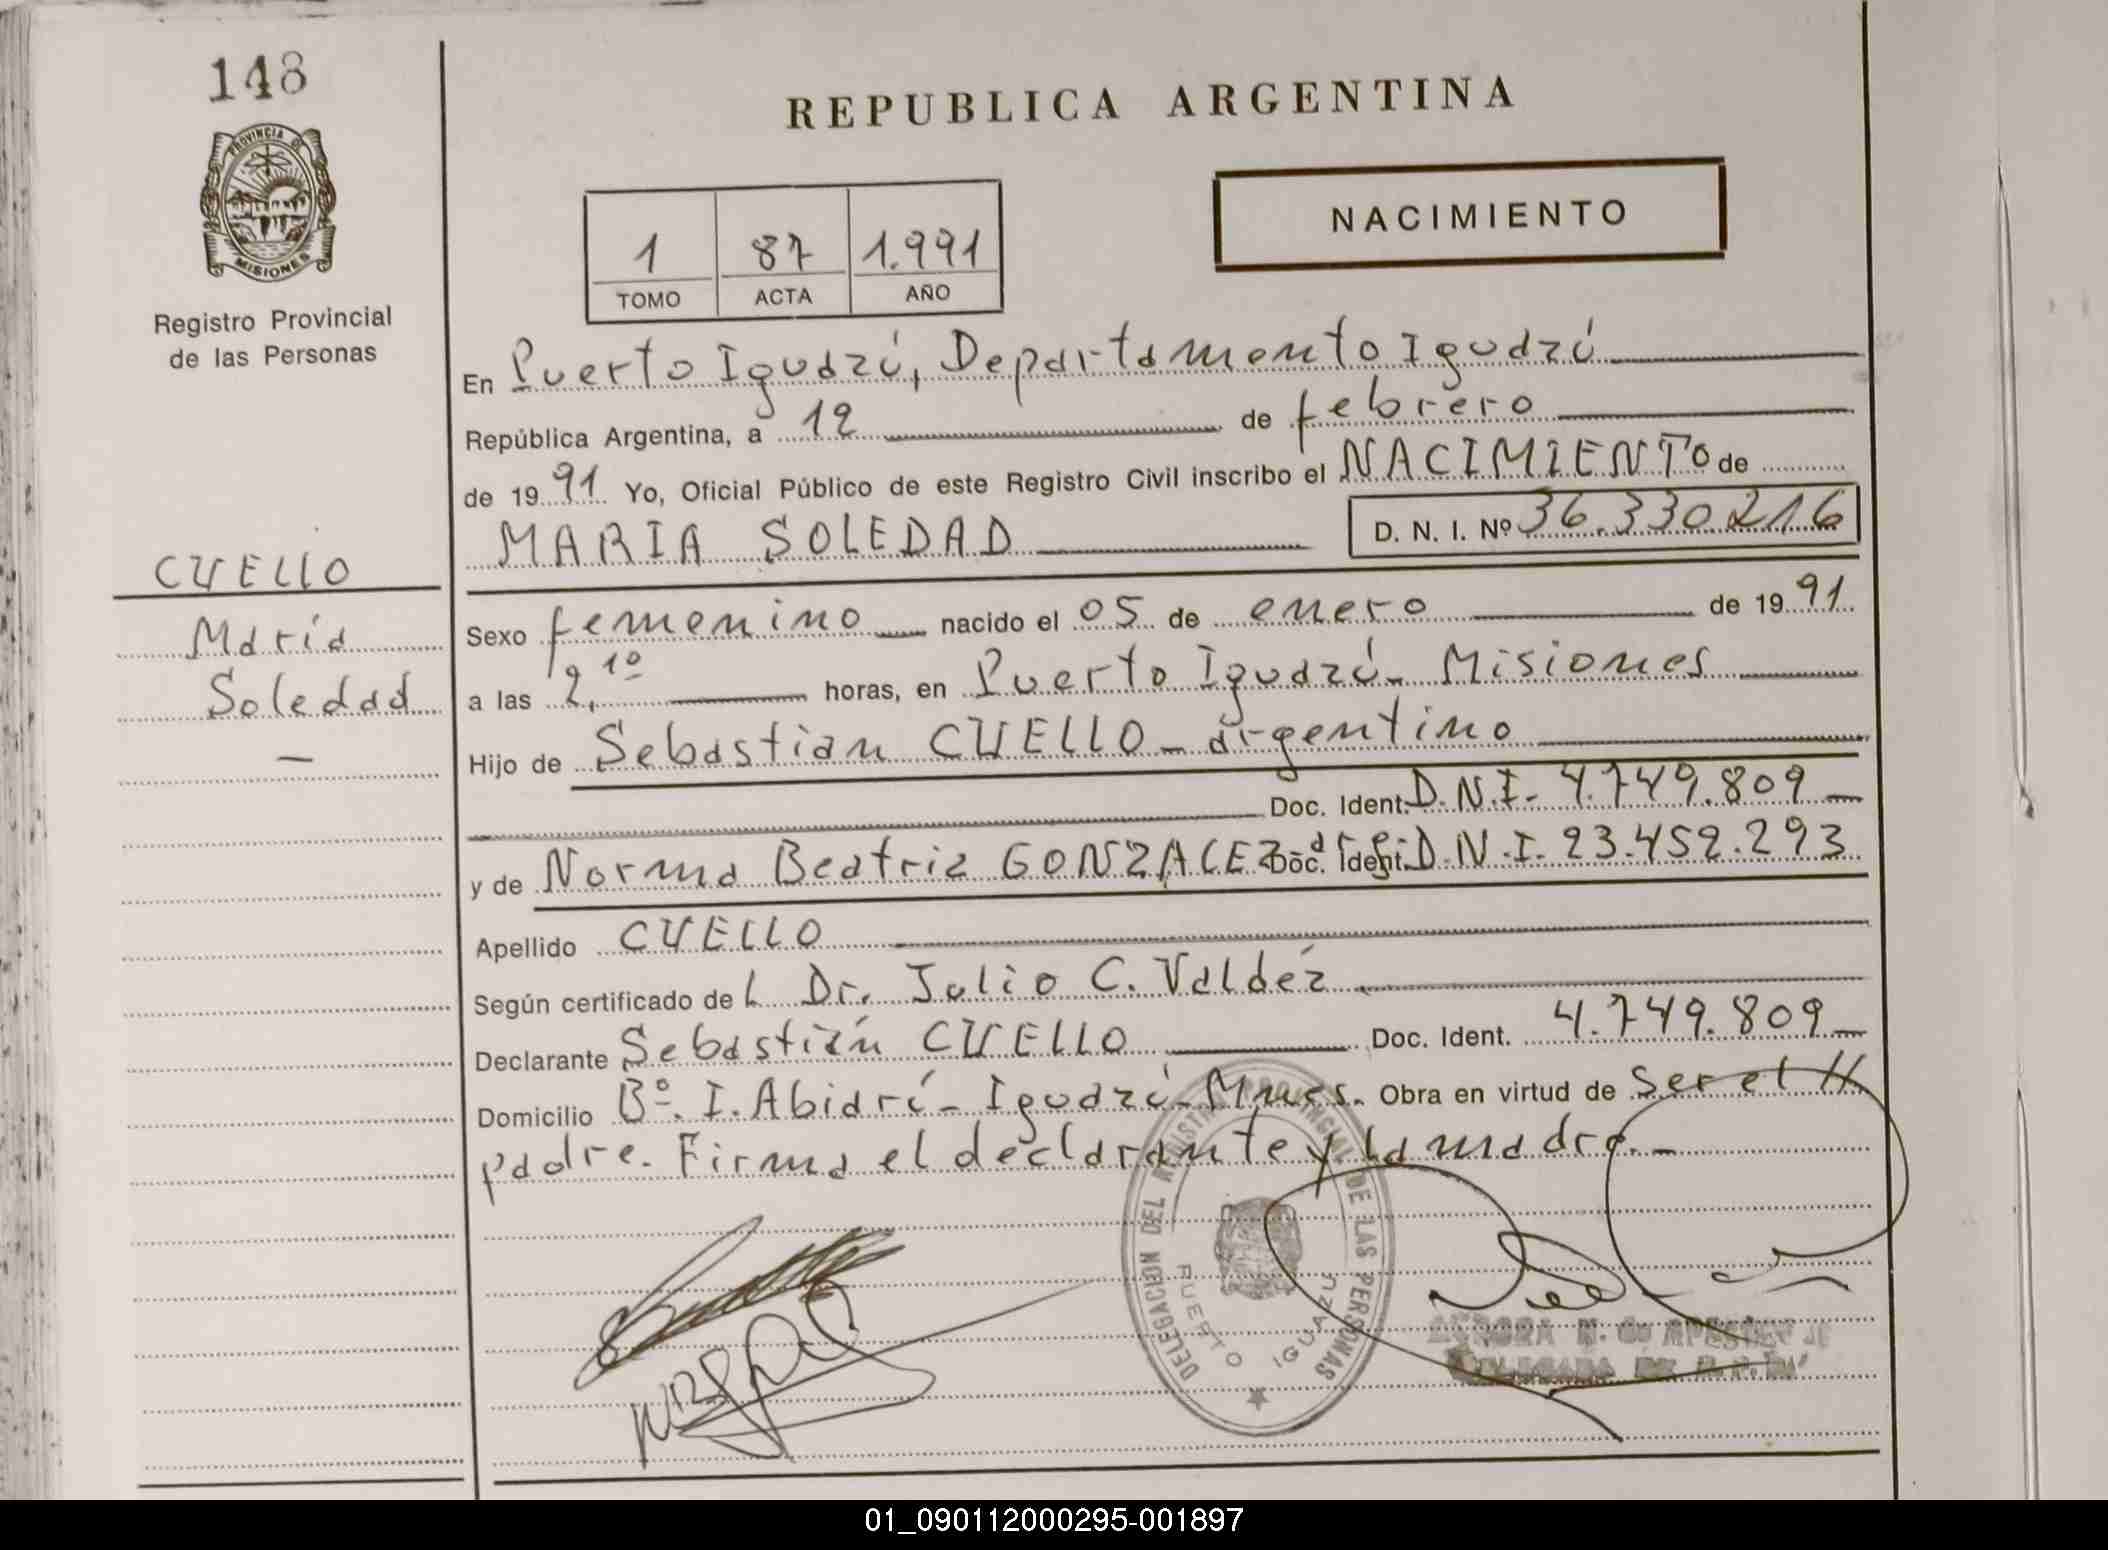 148
REPUBLICA ARGENTINA
PROVINCIA DE
MISIONES
Registro Provincial
de las Personas
1 87 1.991
TOMO ACTA AÑO
NACIMIENTO
En Puerto Iguazú, Departamento Iguazú
República Argentina, a 12 de febrero
de 1991 Yo, Oficial Público de este Registro Civil inscribo el NACIMIENTO de
MARIA SOLEDAD D. N. I. Nº 36.330.216
CUELLO
María
Soledad
Sexo femenino nacido el 05 de enero de 1991
a las 2,10 horas, en Puerto Iguazú - Misiones
Hijo de Sebastian CUELLO - argentino
Doc. Ident. D.N.I. 4.749.809
y de Norma Beatriz GONZALEZ Doc. Ident. D.N.I. 23.452.293
Apellido CUELLO
Según certificado del Dr. Julio C. Valdéz
Declarante Sebastián CUELLO Doc. Ident. 4.749.809
Domicilio Bº. I. Abiaré - Iguazú - Mnes. Obra en virtud de ser el
padre. Firma el declarante y la madre. -
DELEGACION DEL REGISTRO PROVINCIAL DE LAS PERSONAS
PUERTO IGUAZU
01_090112000295-001897